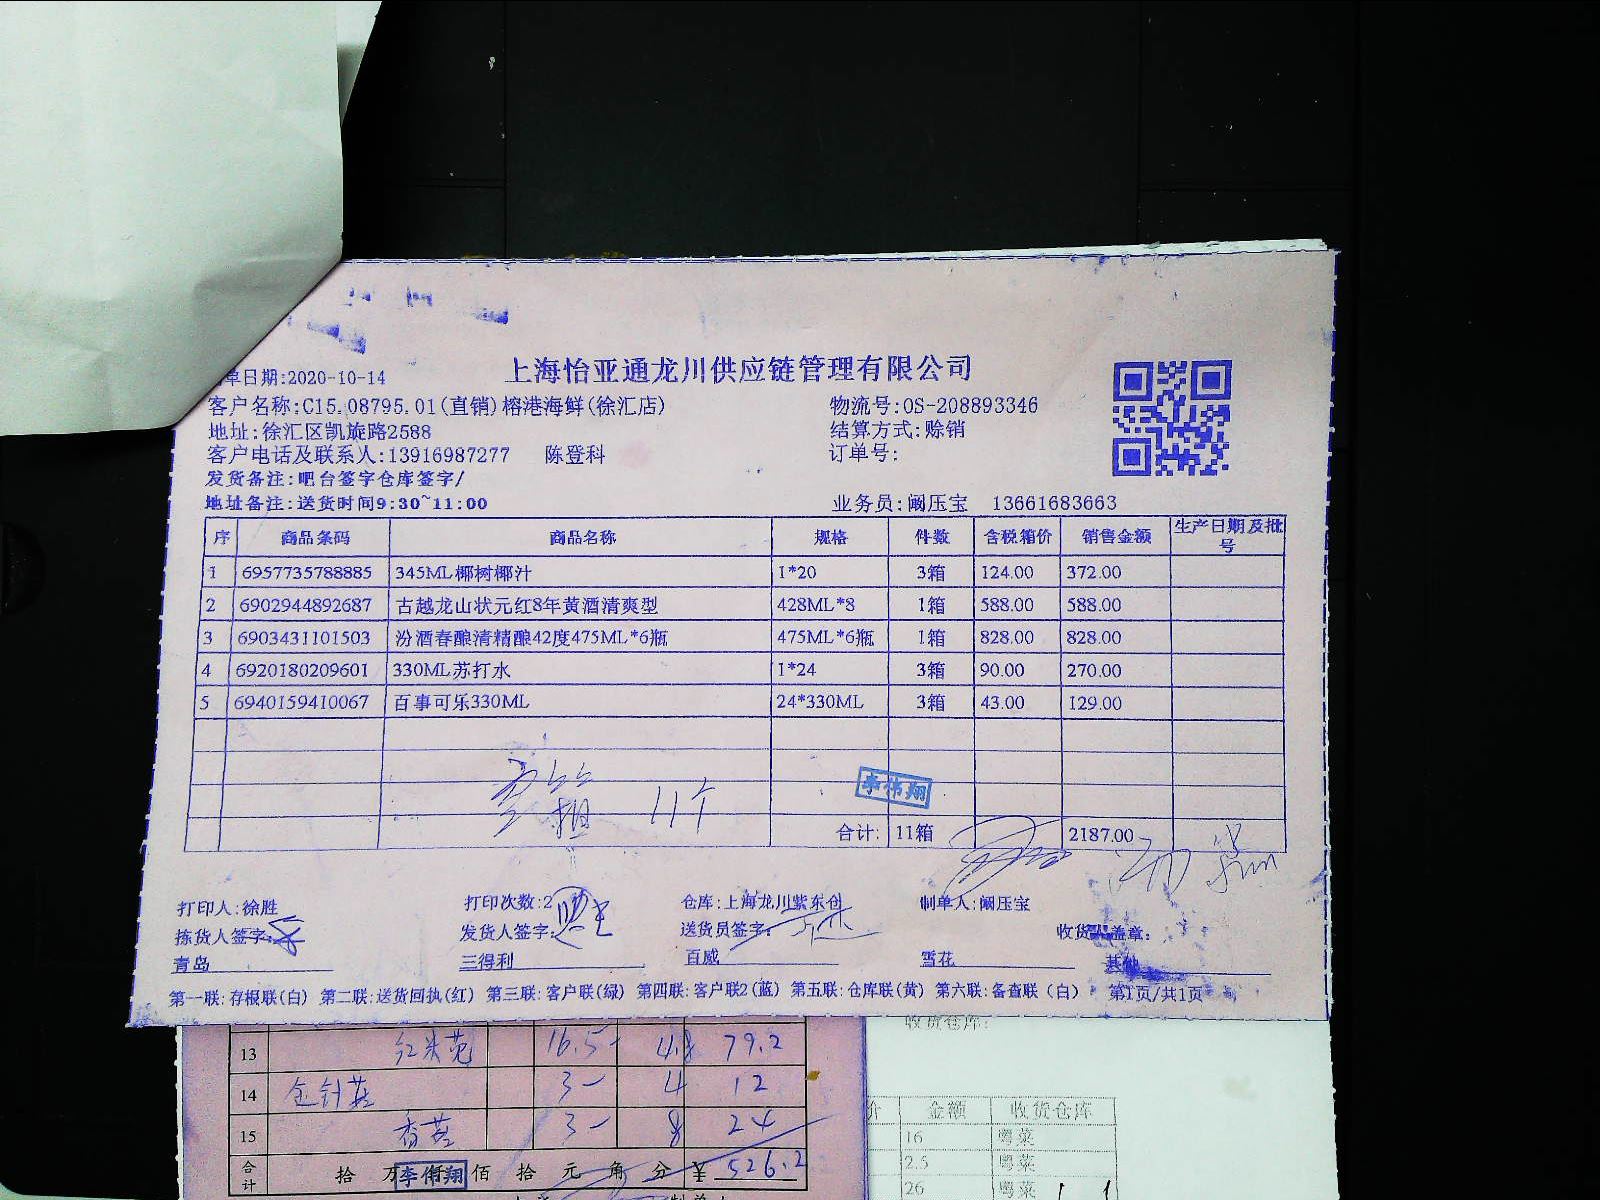 上海怡亚通龙川供应链管理有限公司
单日期:2020-10-14
客户名称:C15.08795.01(直销)榕港海鲜(徐汇店) 物流号:OS-208893346
地址:徐汇区凯旋路2588 结算方式:赊销
客户电话及联系人:13916987277 陈登科 订单号:
发货备注:吧台签字仓库签字/
地址备注:送货时间9:30~11:00 业务员:阚压宝 13661683663
序 商品条码 商品名称 规格 件数 含税箱价 销售金额 生产日期及批号
1 6957735788885 345ML椰树椰汁 1*20 3箱 124.00 372.00
2 6902944892687 古越龙山状元红8年黄酒清爽型 428ML*8 1箱 588.00 588.00
3 6903431101503 汾酒春酿清精酿42度475ML*6瓶 475ML*6瓶 1箱 828.00 828.00
4 6920180209601 330ML苏打水 1*24 3箱 90.00 270.00
5 6940159410067 百事可乐330ML 24*330ML 3箱 43.00 129.00
李伟翔
11个
合计: 11箱 2187.00
打印人:徐胜 打印次数:2 仓库:上海龙川紫东创 制单人:阚压宝
拣货人签字: 发货人签字: 送货员签字: 收货 盖章:
青岛 三得利 百威 雪花 其他
第一联:存根联(白) 第二联:送货回执(红) 第三联:客户联(绿) 第四联:客户联2(蓝) 第五联:仓库联(黄) 第六联:备查联(白) 第1页/共1页
收货仓库:
13 红米苋 16.5 4.8 79.2
14 金针菇 3 4 12
15 香菇 3 8 24
合计 拾 万 仟 佰 拾 元 角 分 ¥ 526.2
李伟翔
价 金额 收货仓库
16 粤菜
2.5 粤菜
26 粤菜